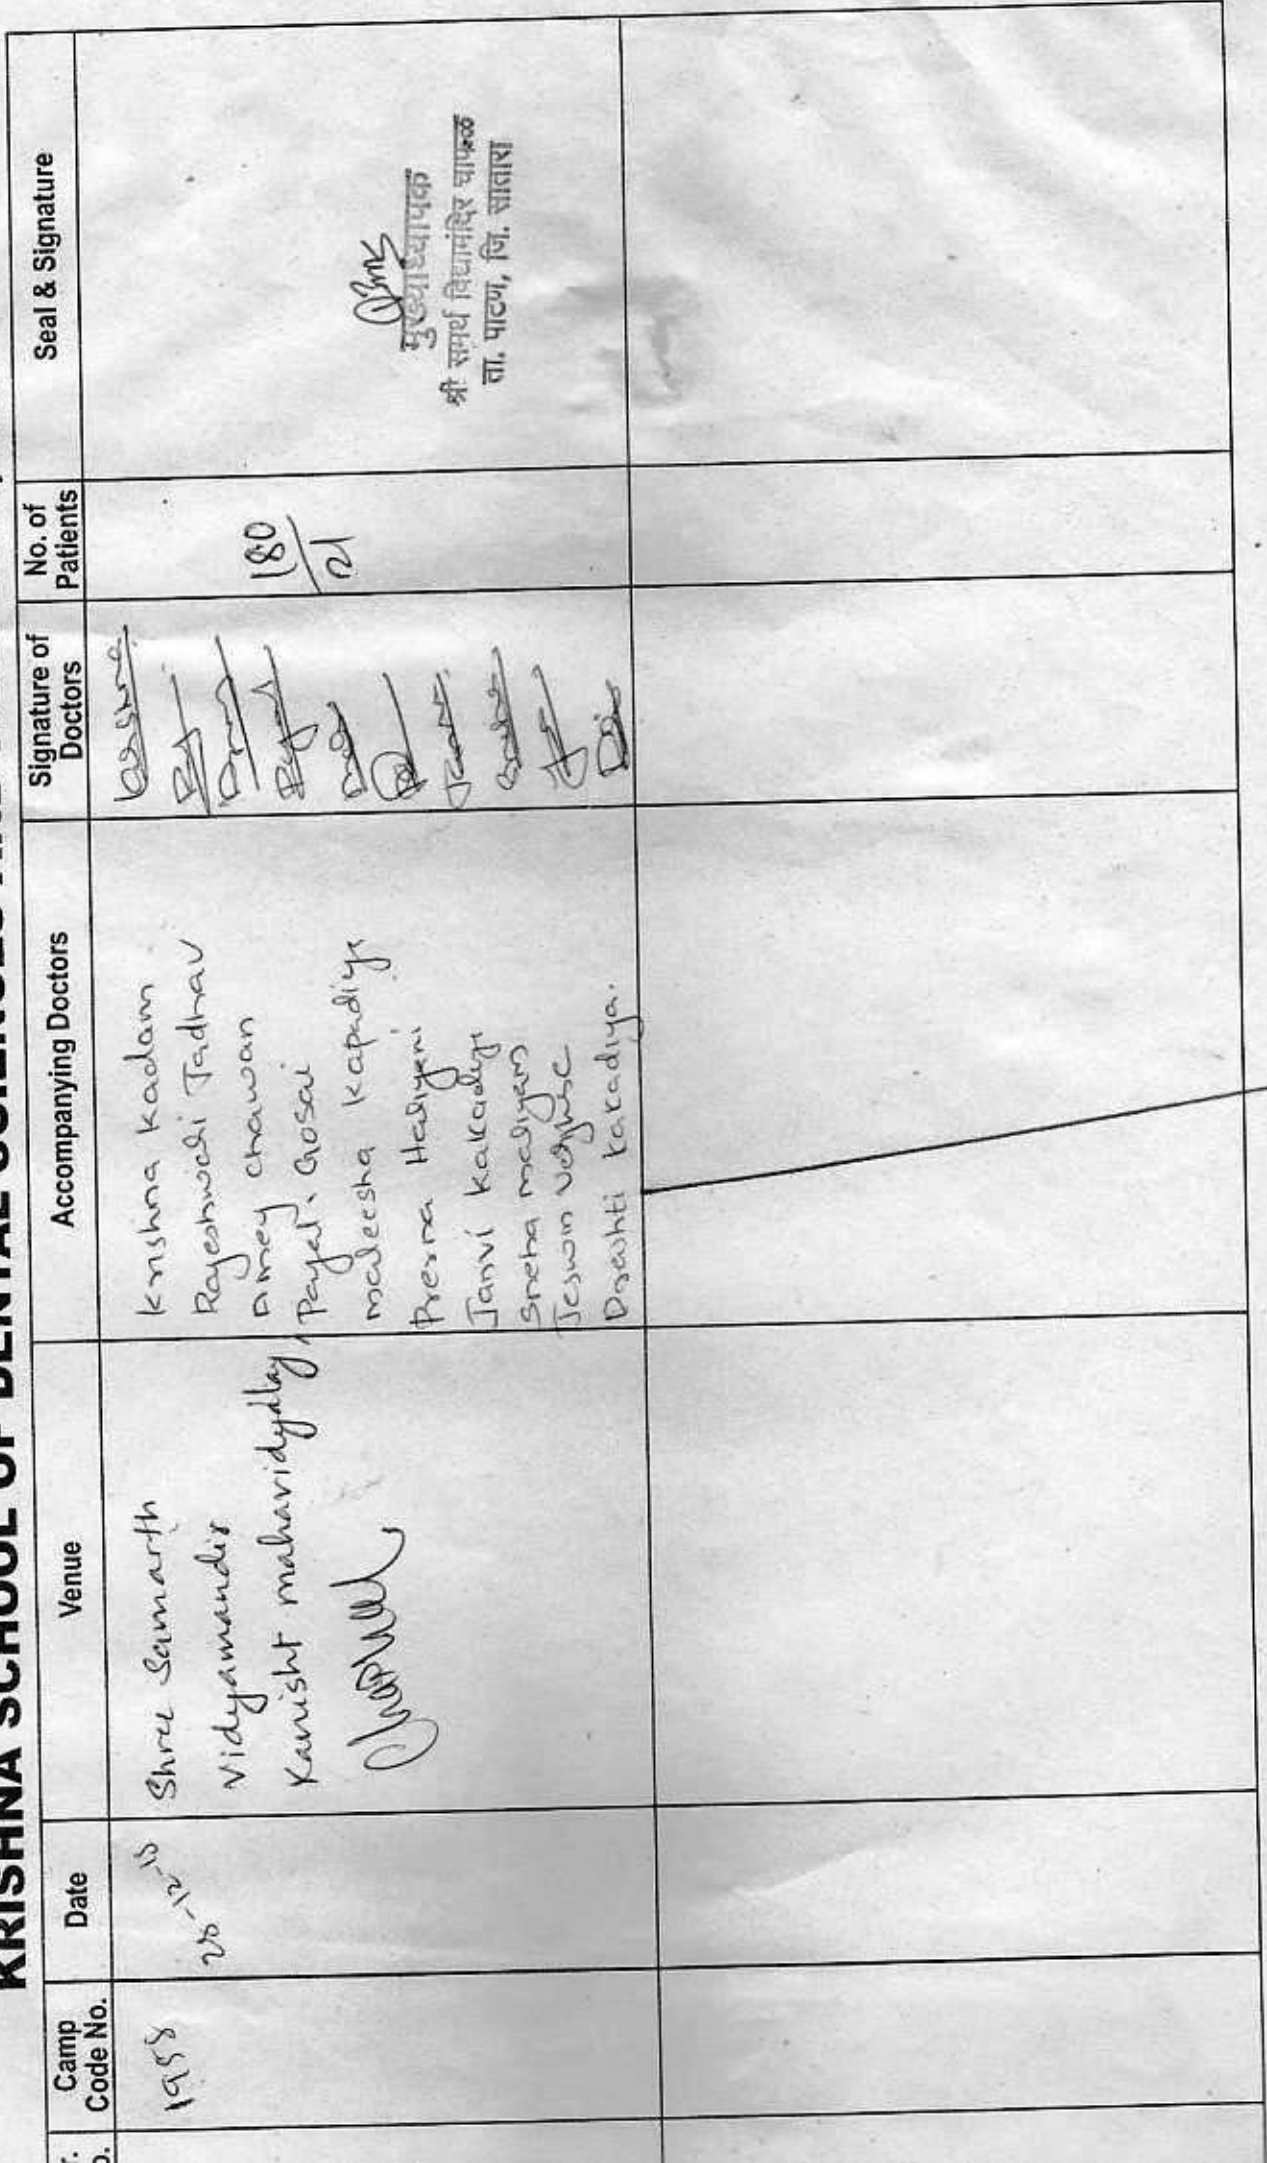 KRISHNA SCHOOL OF DENTAL SCIENCES
Camp Code No.
Date
Venue
Accompanying Doctors
Signature of Doctors
No. of Patients
Seal & Signature
Shree Samarth
Vidyamandir
Kanisht mahavidyalay,
Krishna Kadam
Rajeshwari Jadhav
Amey chawan
Payal. Gosai
maleesha Kapadiya
Prerna Hadiyani
Janvi Kakadiya
Sneha
Jeswin
Drashti Kakadiya.
180
21
मुख्याध्यापक
श्री समर्थ विद्यामंदिर चाफळ
ता. पाटण, जि. सातारा